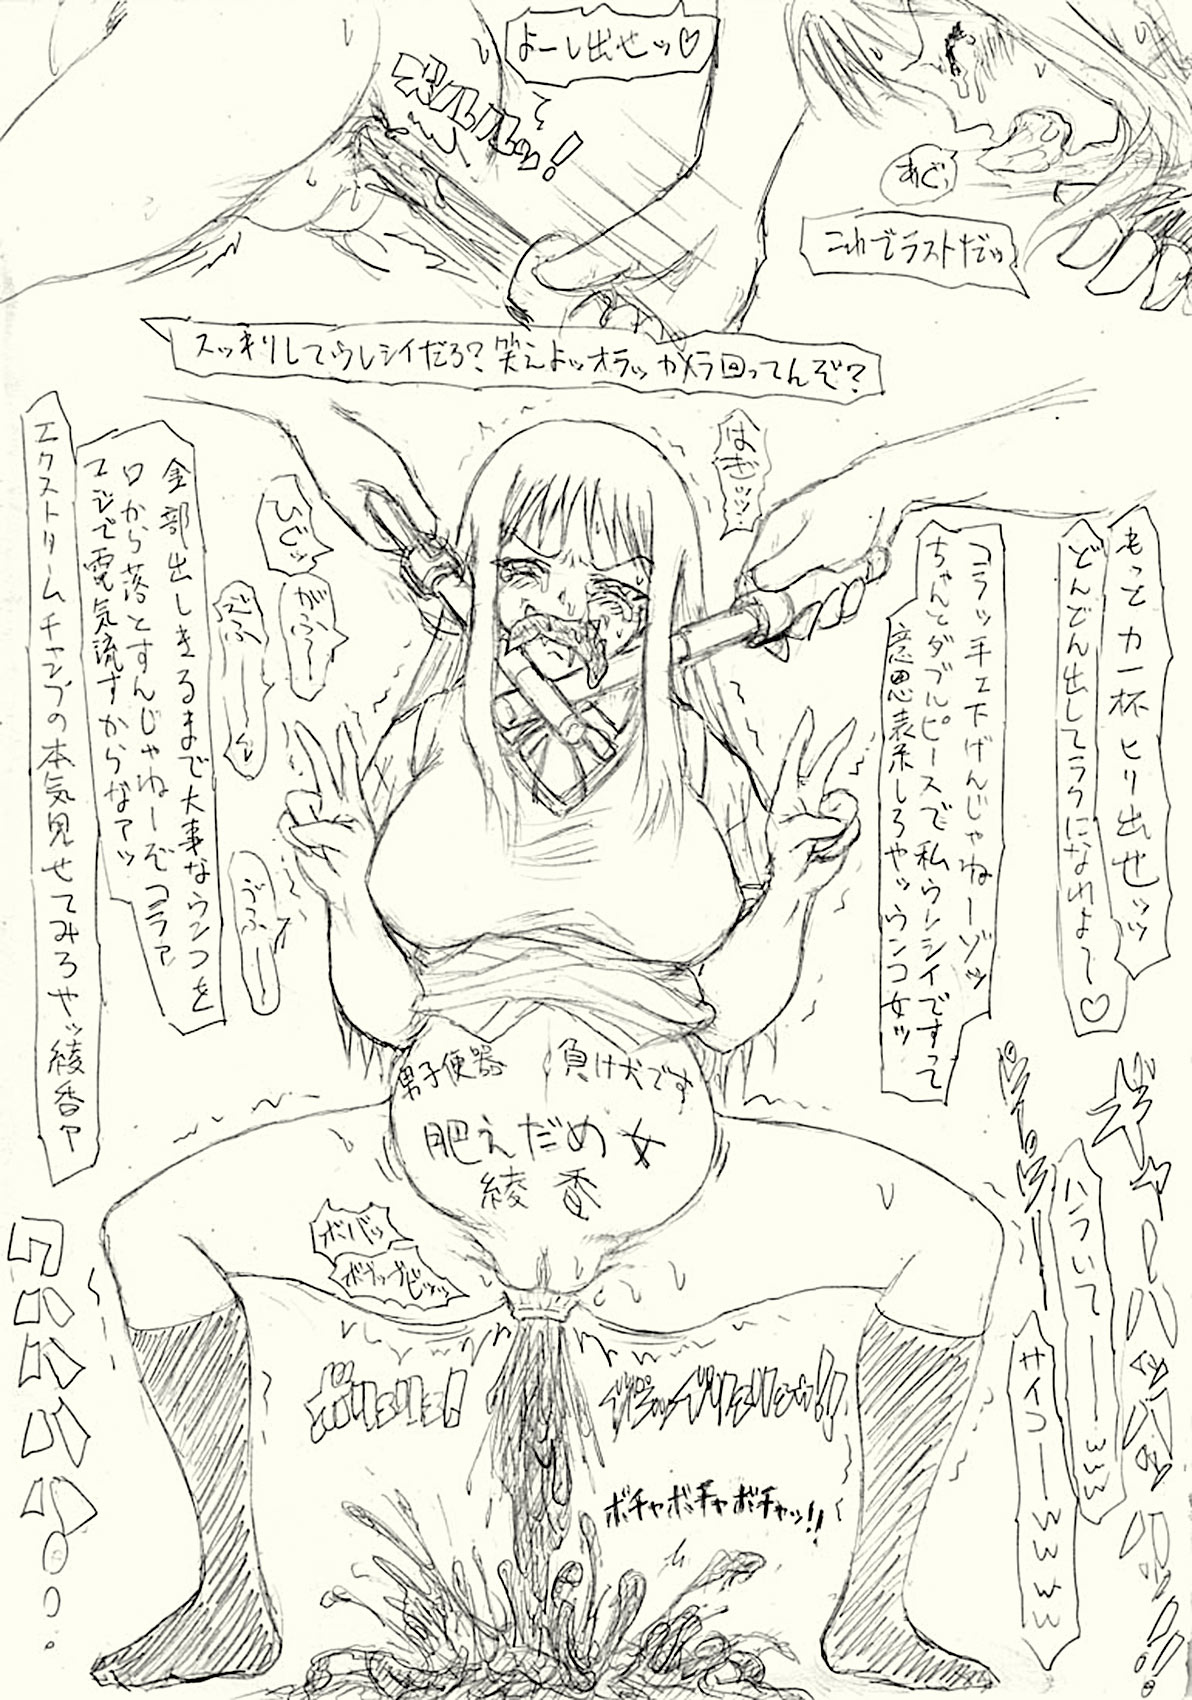 よーし出せッ♡
ボルルルッ!
あぐ
これでラストだッ
スッキリしてウレシイだろ?笑えよッオラッカメラ回ってんぞ?
はぎッッ
もっと力一杯ヒリ出せッッ
どんどん出してラクになれよ〜♡
コラッ手エ下げんじゃねーゾッ
ちゃんとダブルピースで私ウレシイですって
意思表示しろやッウンコ女ッ
ひじッ
がふー
ごふー
ゔふー
全部出しきるまで大事なウンコを
口から落とすんじゃねーぞコラァ
エジで電気流すからなアッ
エクストリームチャンプの本気見せてみろやッ綾香ァ
男子便器
負け犬です
肥えだめ女
綾香
ギャーハッハッハッ!!
ハライてーwww
サイコーwwww
ボバッ
ボブッブビッッ
ボチャボチャボチャッ!!